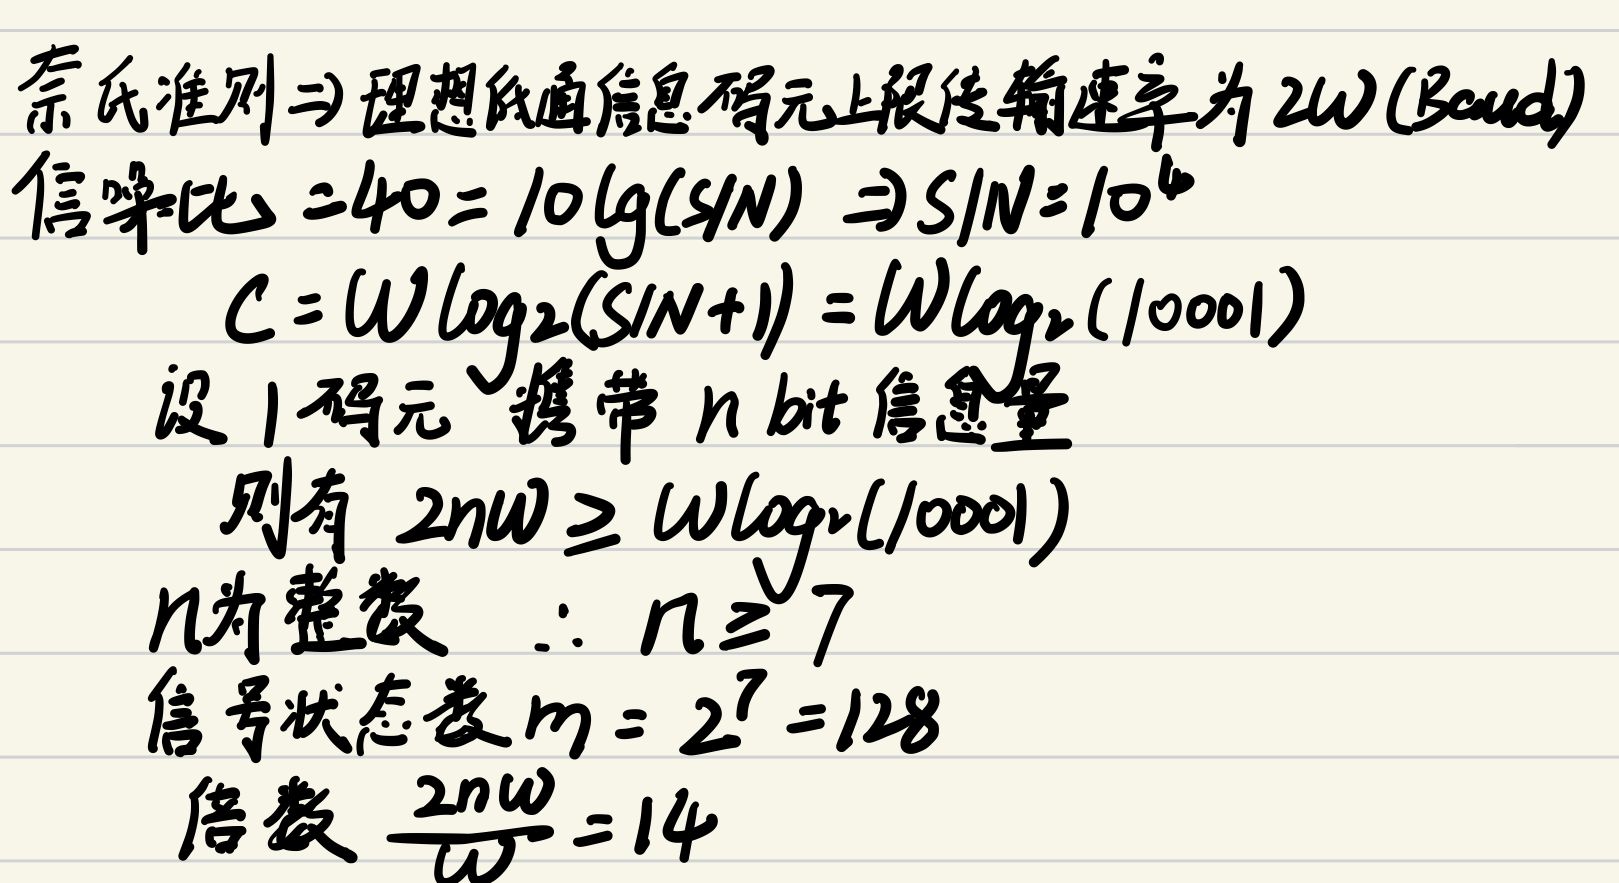 奈氏准则⇒理想低通信息码元上限传输速率为 2W (Baud)
信噪比 = 40 = 10 lg(S/N) ⇒ S/N = 10⁴
C = W log₂(S/N+1) = W log₂(10001)
设 1 码元 携带 n bit 信息量
则有 2nW ≥ W log₂(10001)
n为整数 ∴ n ≥ 7
信号状态数 m = 2⁷ = 128
倍数 2nW/W = 14